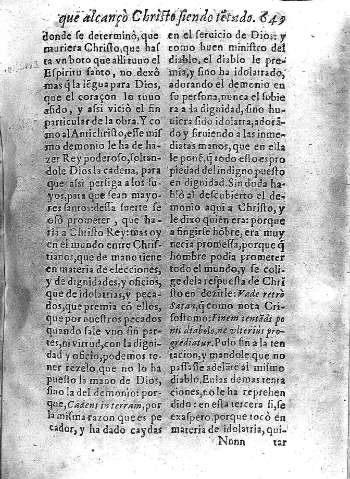 que alcançò Christo siendo tẽtado. 649
donde se determinò, que
muriera Christo, que has
ta vn boto que alli tuuo el
Espiritu santo, no dexò
mas q̃ la lẽgua para Dios,
que el coraçon lo tuuo
asido, y assi viciò el fin
particular de la obra. Y co
mo al Antichristo, esse mis
mo demonio le ha de ha-
zer Rey poderoso, soltan-
dole Dios la cadena, para
que assi persiga a los su-
yos, para que sean mayo-
res santos: dessa suerte se
osò prometer, que ha-
ria à Christo Rey: mas oy
en el mundo entre Chris-
tianos, que de mano tiene
en materia de elecciones,
y de dignidades, y oficios,
que de idolatrias, y peca-
dos, que premia cõ ellos,
que por nuestros pecados
quando sale vno sin par-
tes, ni virtud, con la digni-
dad y oficio, podemos te-
ner rezelo, que no lo ha
puesto la mano de Dios,
sino la del demonio: por-
que, Cadent in terram, por
la misma razon que es pe
cador, y ha dado caydas
en el seruicio de Dios: y
como buen ministro del
diablo, el diablo le pre-
mia, y sino ha idolatrado,
adorando el demonio en
su persona, nunca el subie
ra a la dignidad, sino hu-
uiera sido idolatra, adorã-
do y siruiendo a las inme-
diatas manos, que en ella
le ponẽ, q̃ todo esto es pro
piedad del indigno puesto
en dignidad. Sin duda ha-
blò al descubierto el de-
monio aqui a Christo, y
le dixo quien era: porque
a fingirse hõbre, era muy
necia promessa, porque q̃
hombre podia prometer
todo el mundo, y se coli-
ge de la respuesta de Chris
to en dezirle: Vade retro
Satan, q̃ como nota Cri-
sostomo: Finem tentãdi po
nit diabolo, ne vlterius pro-
grediatur. Puso fin a la ten
tacion, y mandole que no
passasse adelãte al mismo
diablo. En las demas tenta
ciones, no le ha reprehen
dido: en esta tercera si, se
exasperò, porque tocò en
materia de idolatria, qui-
Nnnn tar